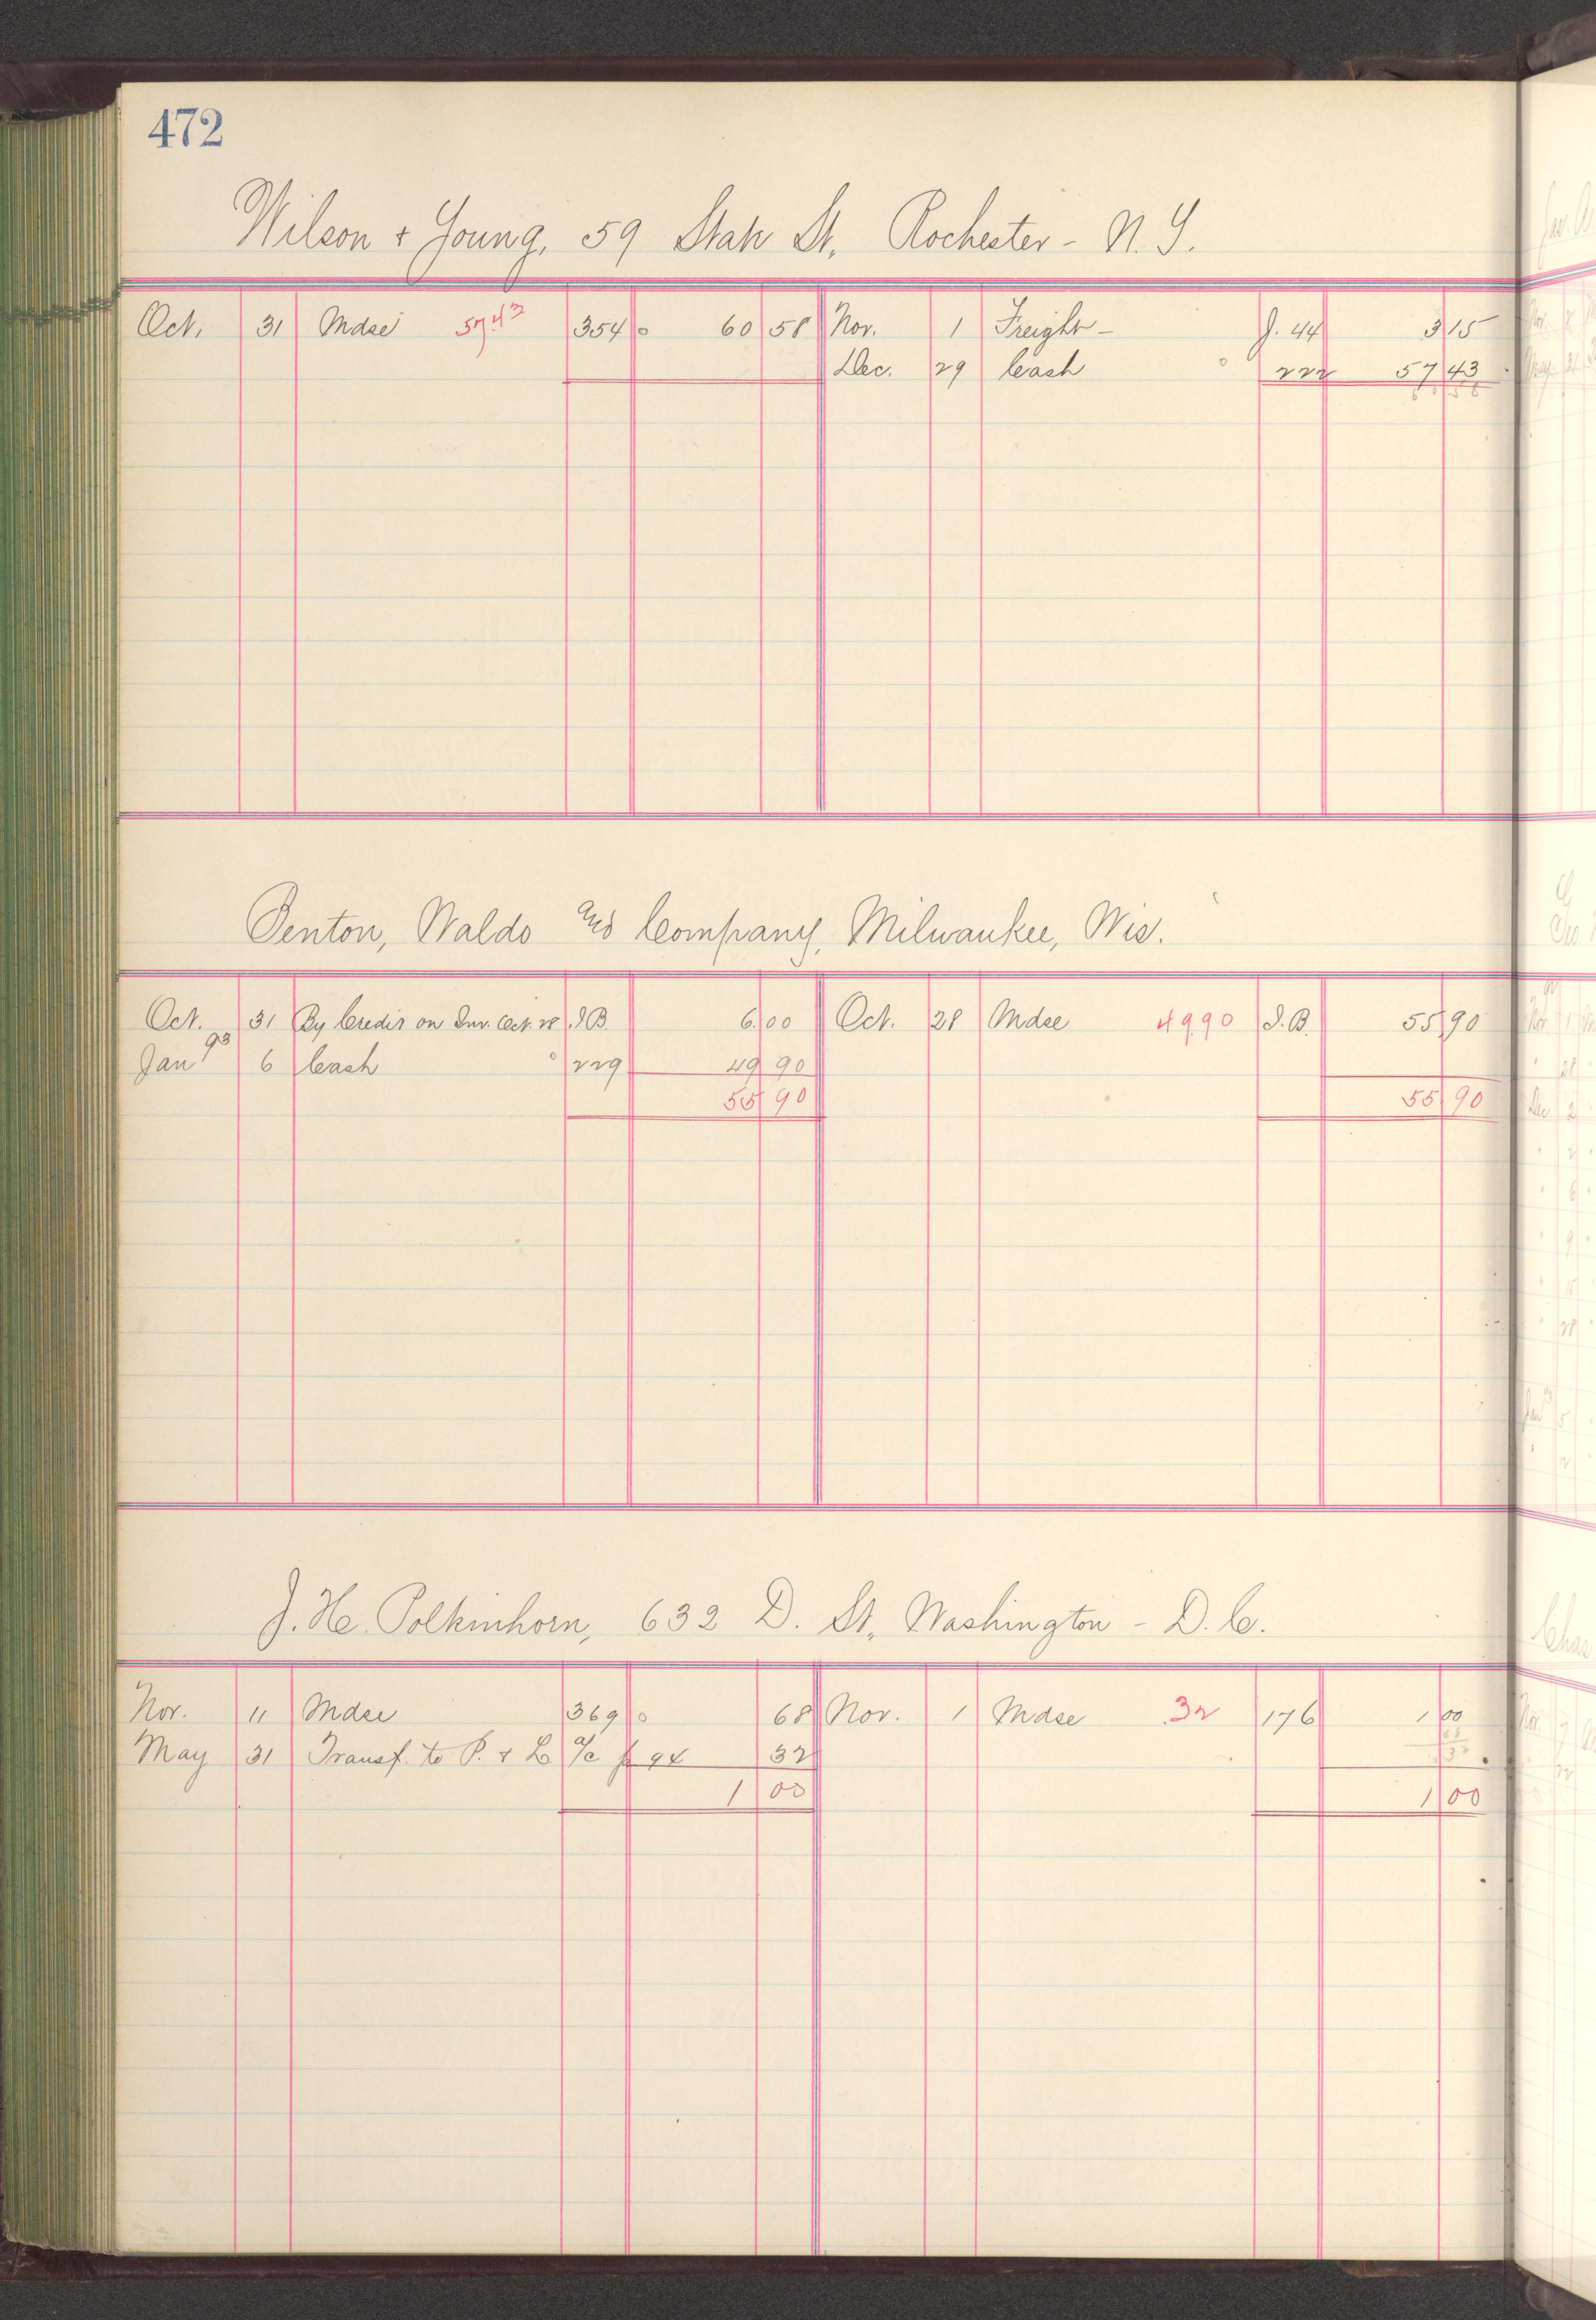 472
Wilson & Young, 59 State St, Rochester - N. Y.
Oct. 31 Mdse 57.43 354 60 58 Nov. 1 Freight - J. 44 3 15
Dec. 29 Cash 222 57 43
60 58
Penton, Waldo and Company, Milwaukee, Wis.
Oct. 31 By Credit on Inv. Oct. 28 J. B. 6.00 Oct. 28 Mdse 49.90 J. B. 55 90
Jan 93 6 Cash 229 49 90
55 90 55 90
J. H. Polkinhorn, 632 D. St, Washington - D. C.
Nov. 11 Mdse 369 68 Nov. 1 Mdse .32 176 1 00
68
May 31 Transf. to P. & L a/c J 94 32 32
1 00 1 00